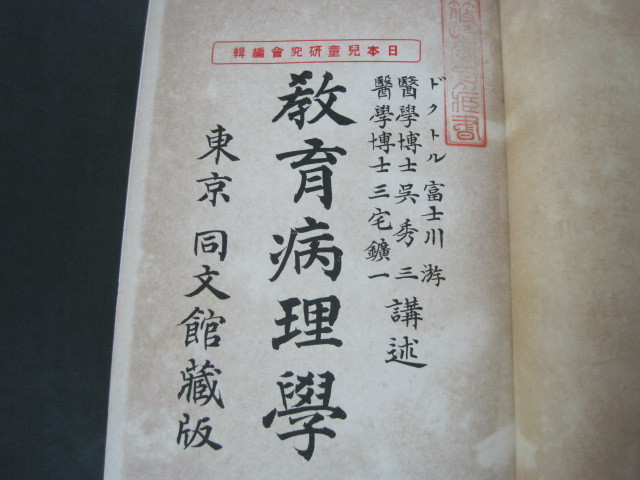 日本兒童研究會編輯
ドクトル 富士川 游
醫學博士 呉 秀 三
醫學博士 三宅鑛一
講述
教育病理學
東京 同文館藏版